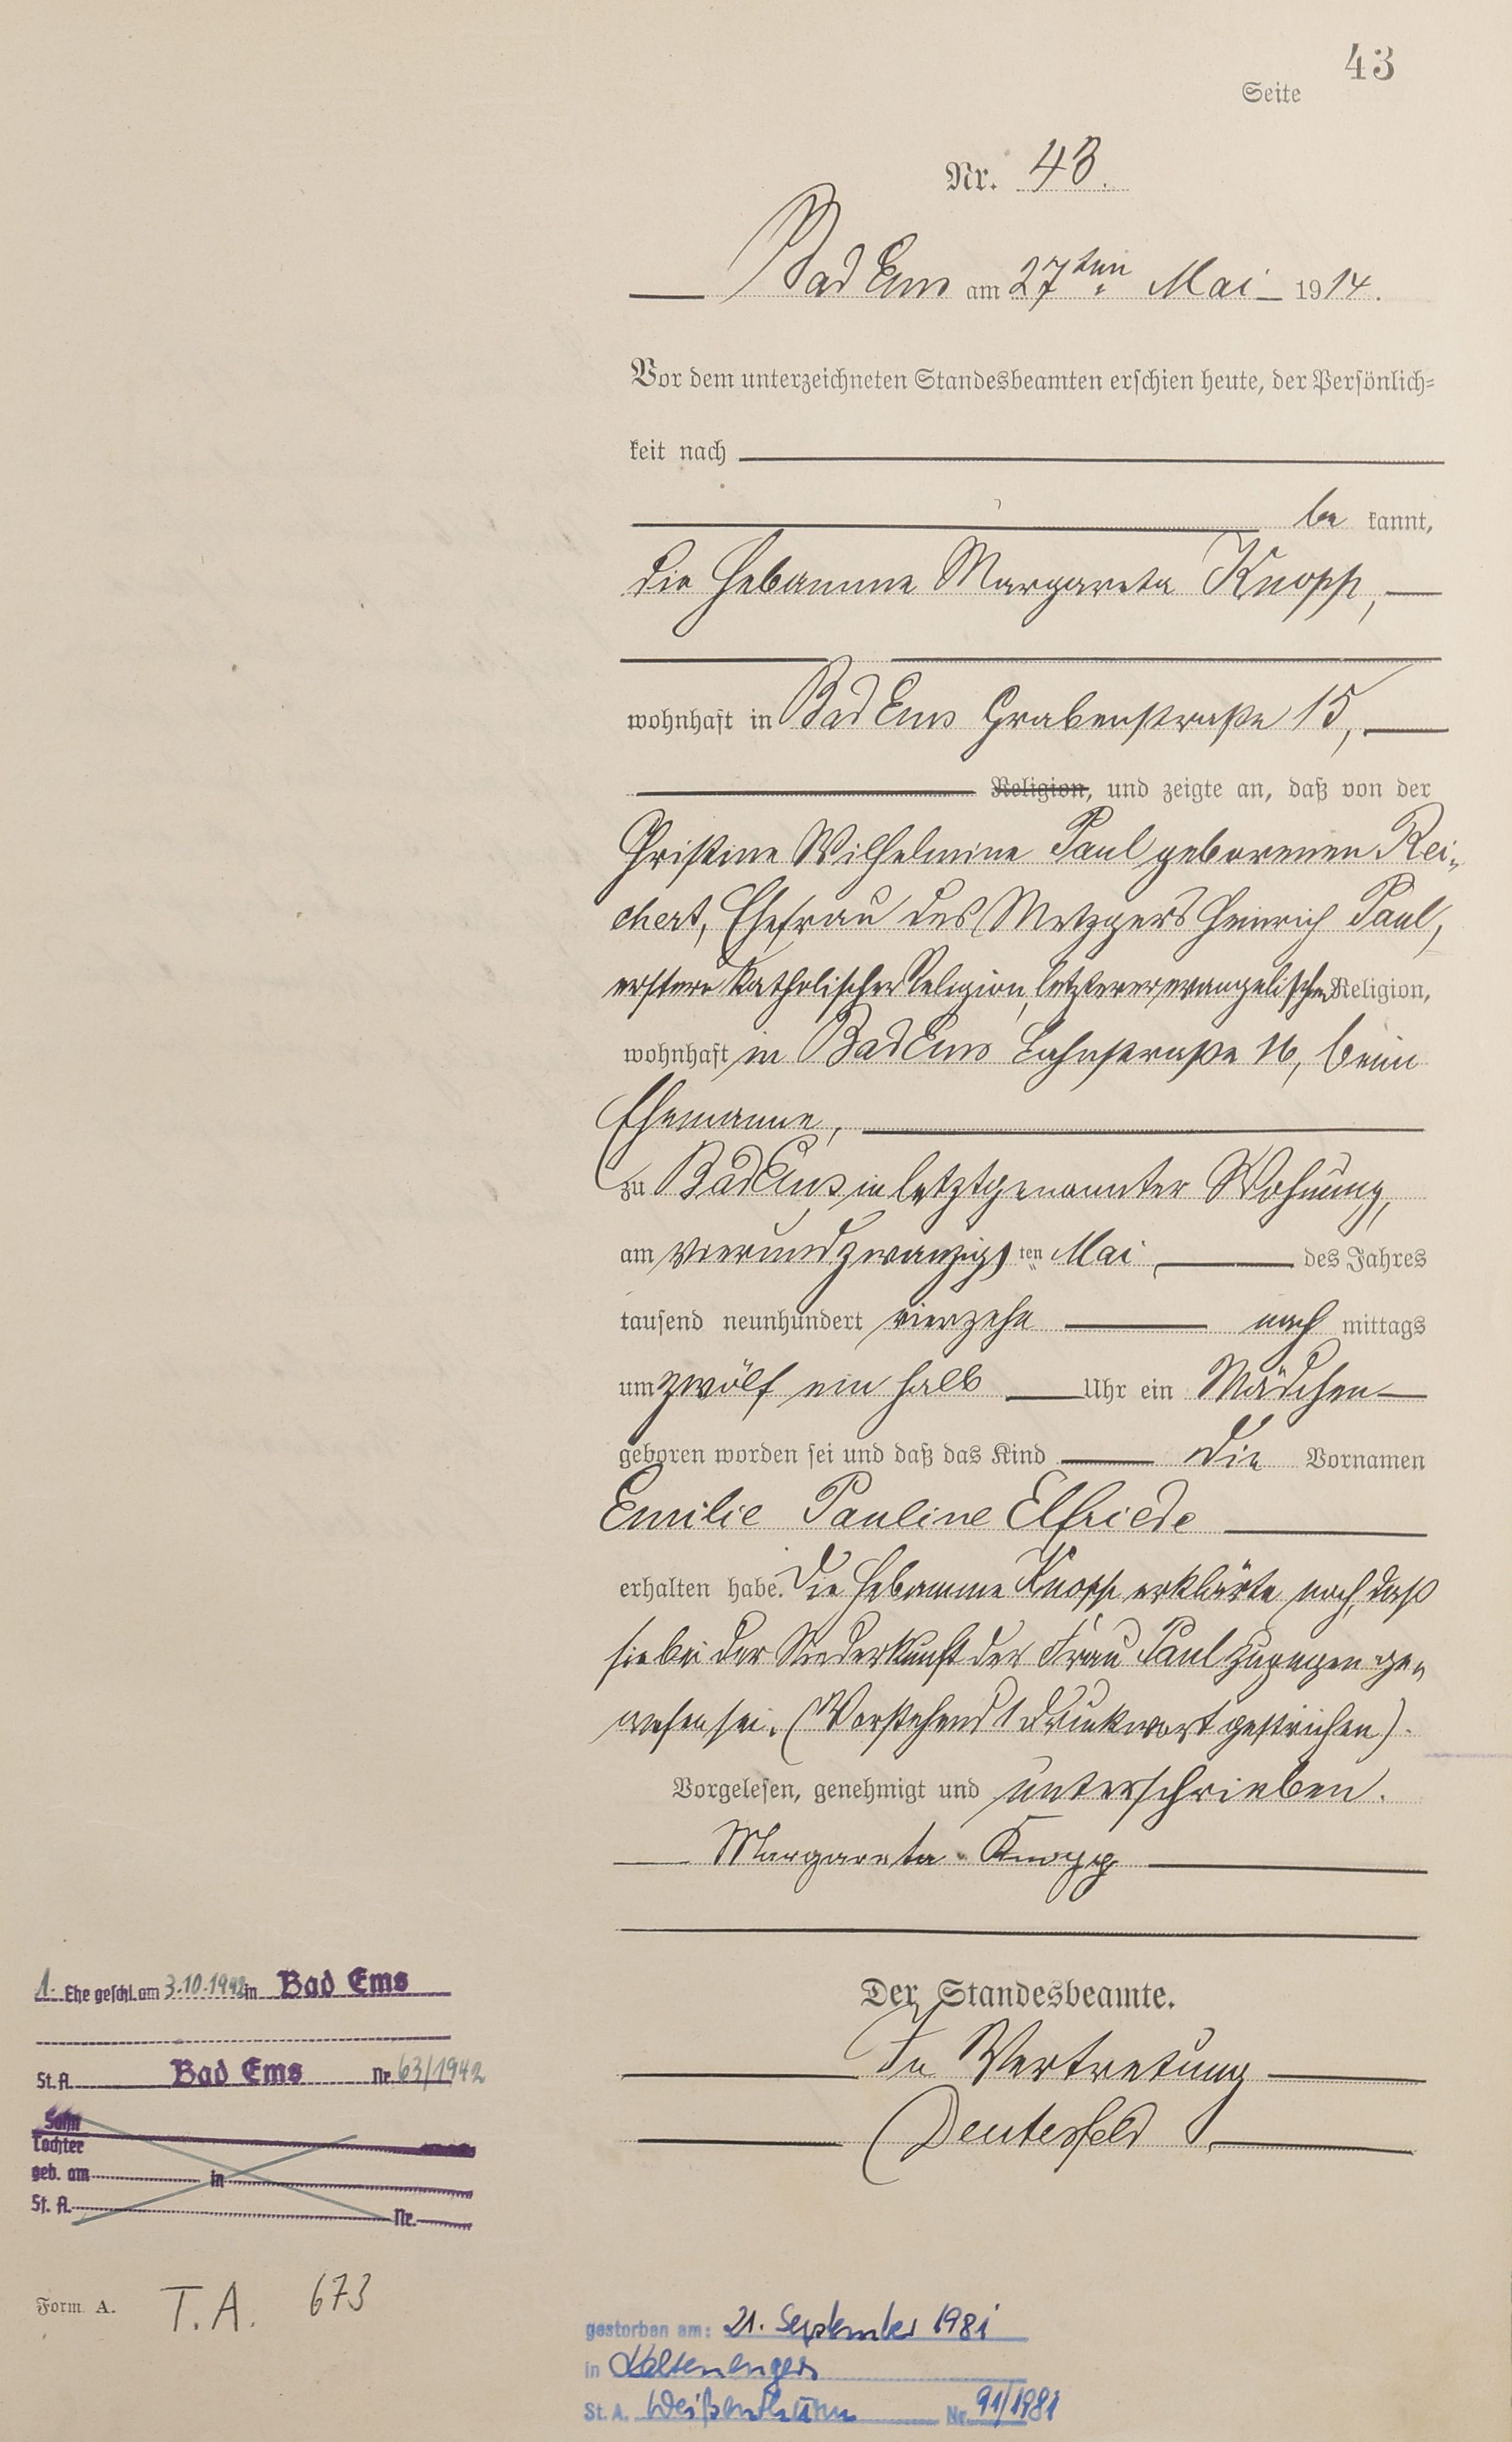 43
Seite
Nr. 43.
Bad Ems am 27ten Mai 1914.
Vor dem unterzeichneten Standesbeamten erschien heute, der Persönlich-
keit nach
be kannt,
die Hebamme Margareta Knopp,
wohnhaft in Bad Ems Grabenstraße 15,
Religion, und zeigte an, daß von der
Christine Wilhelmine Paul geborenen Rei-
chert, Ehefrau des Metzgers Heinrich Paul,
erstere katholischer Religion, letzterer evangelischer Religion,
wohnhaft in Bad Ems Lahnstraße 16, beim
Ehemanne,
zu Bad Ems in letztgenannter Wohnung,
am vierundzwanzigsten Mai des Jahres
tausend neunhundert vierzehn nach mittags
um zwölf ein halb Uhr ein Mädchen
geboren worden sei und daß das Kind die Vornamen
Emilie Pauline Elfriede
erhalten habe. Die Hebamme Knopp erklärte noch, daß
sie bei der Niederkunft der Frau Paul zugegen ge-
wesen sei. (Vorstehend 1 Druckwort gestrichen).
Vorgelesen, genehmigt und unterschrieben.
Margareta Knopp
Der Standesbeamte.
In Vertretung
1. Ehe geschl. am 3.10.1942 in Bad Ems
St. A. Bad Ems Nr. 63/1942
Sohn
Tochter
geb. am in
St. A. Nr.
Form. A.
T.A. 673
gestorben am: 21. September 1981
in Kaltenengers
St. A. Weißenthurm Nr. 91/1981